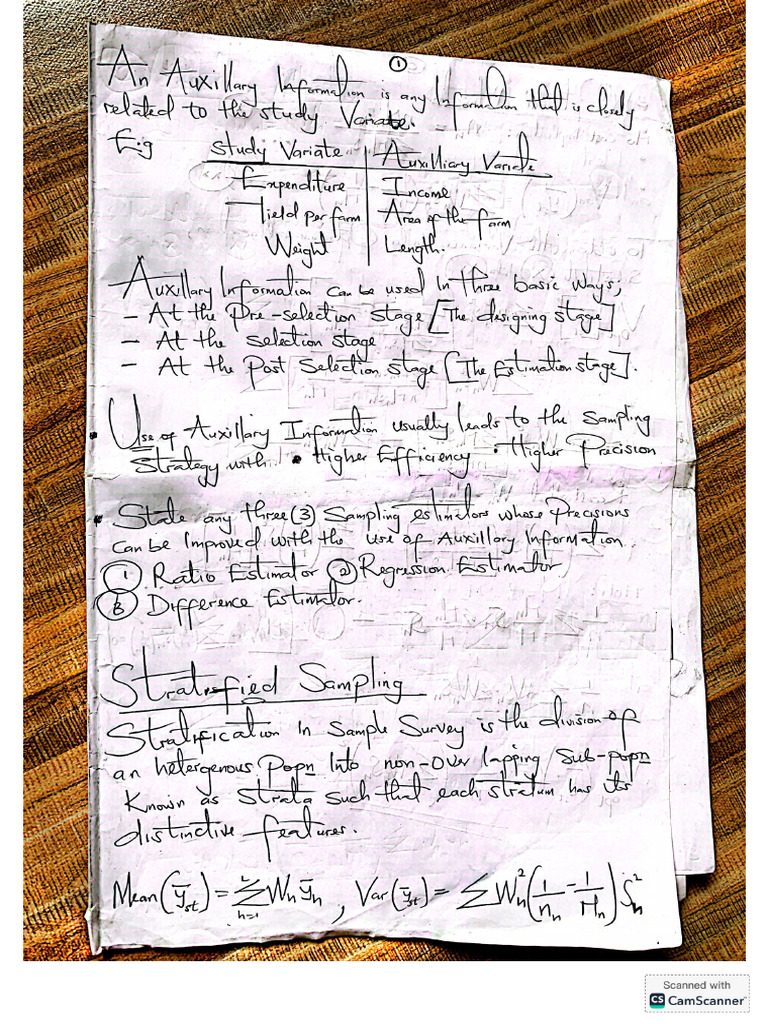 ①
An Auxillary Information is any Information that is closely
related to the study Variate.
E.g
Study Variate | Auxilliary Variate
Expenditure | Income
Yield per farm | Area of the farm
Weight | Length.
Auxillary Information can be used In three basic ways;
- At the Pre-selection stage [The designing stage]
- At the selection stage
- At the Post Selection stage [The Estimation stage].
• Use of Auxillary Information usually leads to the sampling
Strategy with • Higher Efficiency • Higher Precision
• State any three (3) Sampling estimators whose Precisions
can be Improved with the use of Auxillary Information.
① Ratio Estimator ② Regression Estimator
③ Difference Estimator.
Stratified Sampling
Stratification In Sample Survey is the division of
an hetergenous Popn Into non-over lapping Sub-popn
Known as Strata such that each stratum has its
distinctive features.
Mean(ȳst) = Σ_{h=1}^{L} Wh ȳh , Var(ȳst) = Σ Wh² (1/nh - 1/Nh) Sh²
Scanned with
CS CamScanner